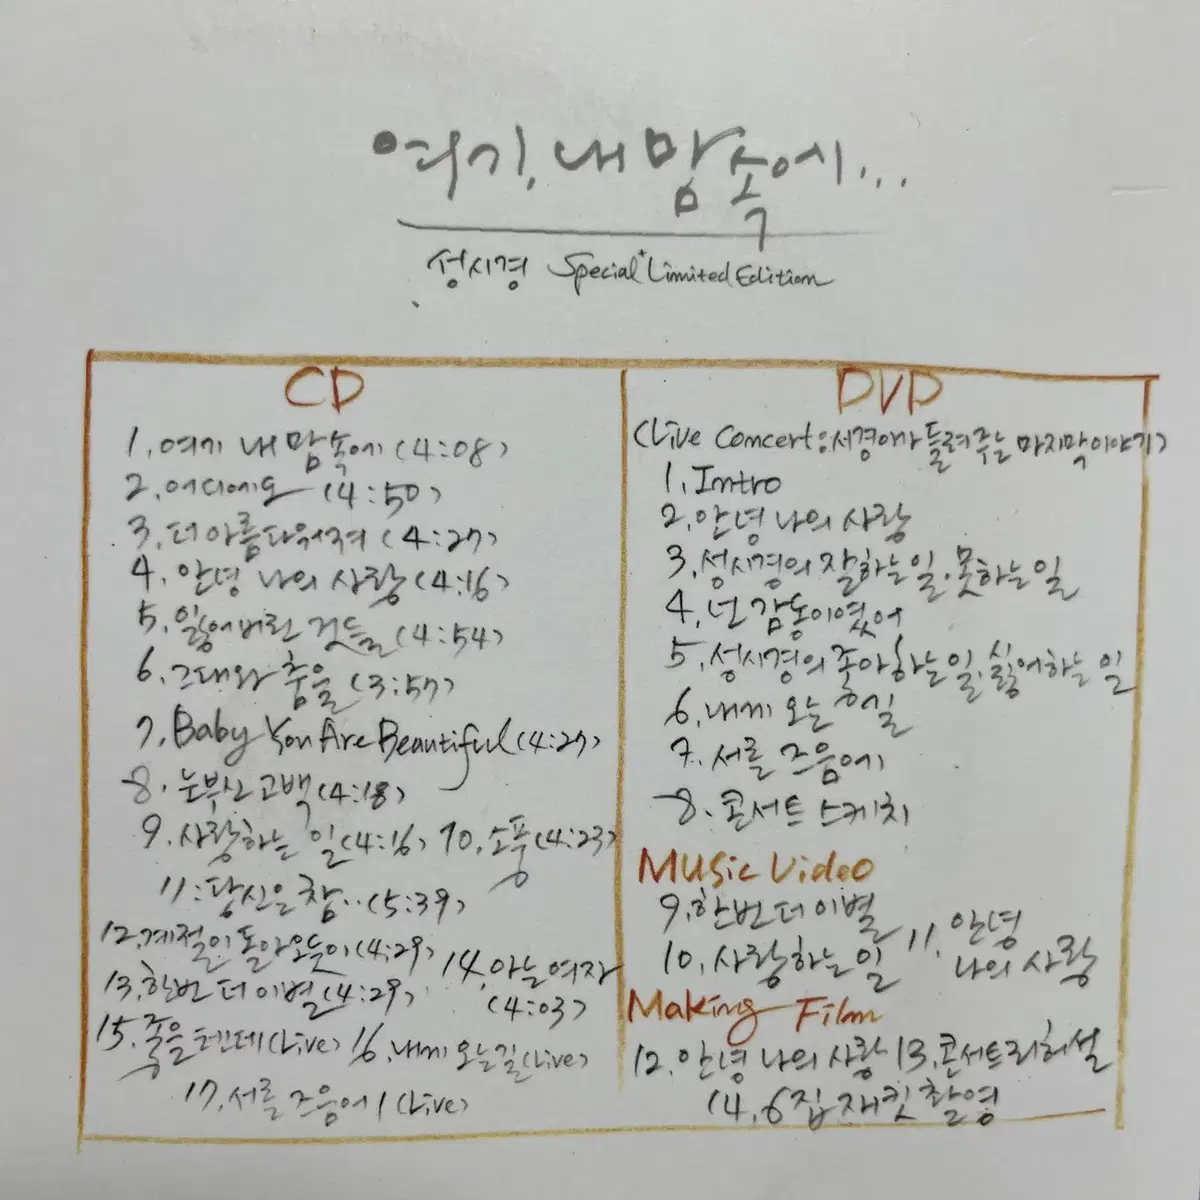 여기, 내 맘 속에...
성시경 Special Limited Edition
CD
1. 여기 내 맘 속에 (4:08)
2. 어디에도 (4:50)
3. 더 아름다워져 (4:27)
4. 안녕 나의 사랑 (4:16)
5. 잃어버린 것들 (4:54)
6. 그대와 춤을 (3:57)
7. Baby You Are Beautiful (4:27)
8. 눈부신 고백 (4:18)
9. 사랑하는 일 (4:16) 10. 소풍 (4:23)
11. 당신은 참.. (5:39)
12. 계절이 돌아오듯이 (4:29)
13. 한번 더 이별 (4:29) 14. 아는 여자 (4:03)
15. 좋을텐데 (Live) 16. 내게 오는 길 (Live)
17. 서른 즈음에 (Live)
DVD
(Live Concert: 시경이가 들려주는 마지막 이야기)
1. Intro
2. 안녕 나의 사랑
3. 성시경의 잘하는 일, 못하는 일
4. 넌 감동이였어
5. 성시경의 좋아하는 일, 싫어하는 일
6. 내게 오는 길
7. 서른 즈음에
8. 콘서트 스케치
Music Video
9. 한번 더 이별
10. 사랑하는 일 11. 안녕
나의 사랑
Making Film
12. 안녕 나의 사랑 13. 콘서트 리허설
14. 6집 재킷 촬영